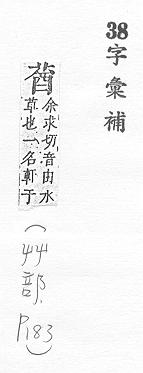 38字彙補
余求切音由水
草也一名軒于
(艸部.P.183)